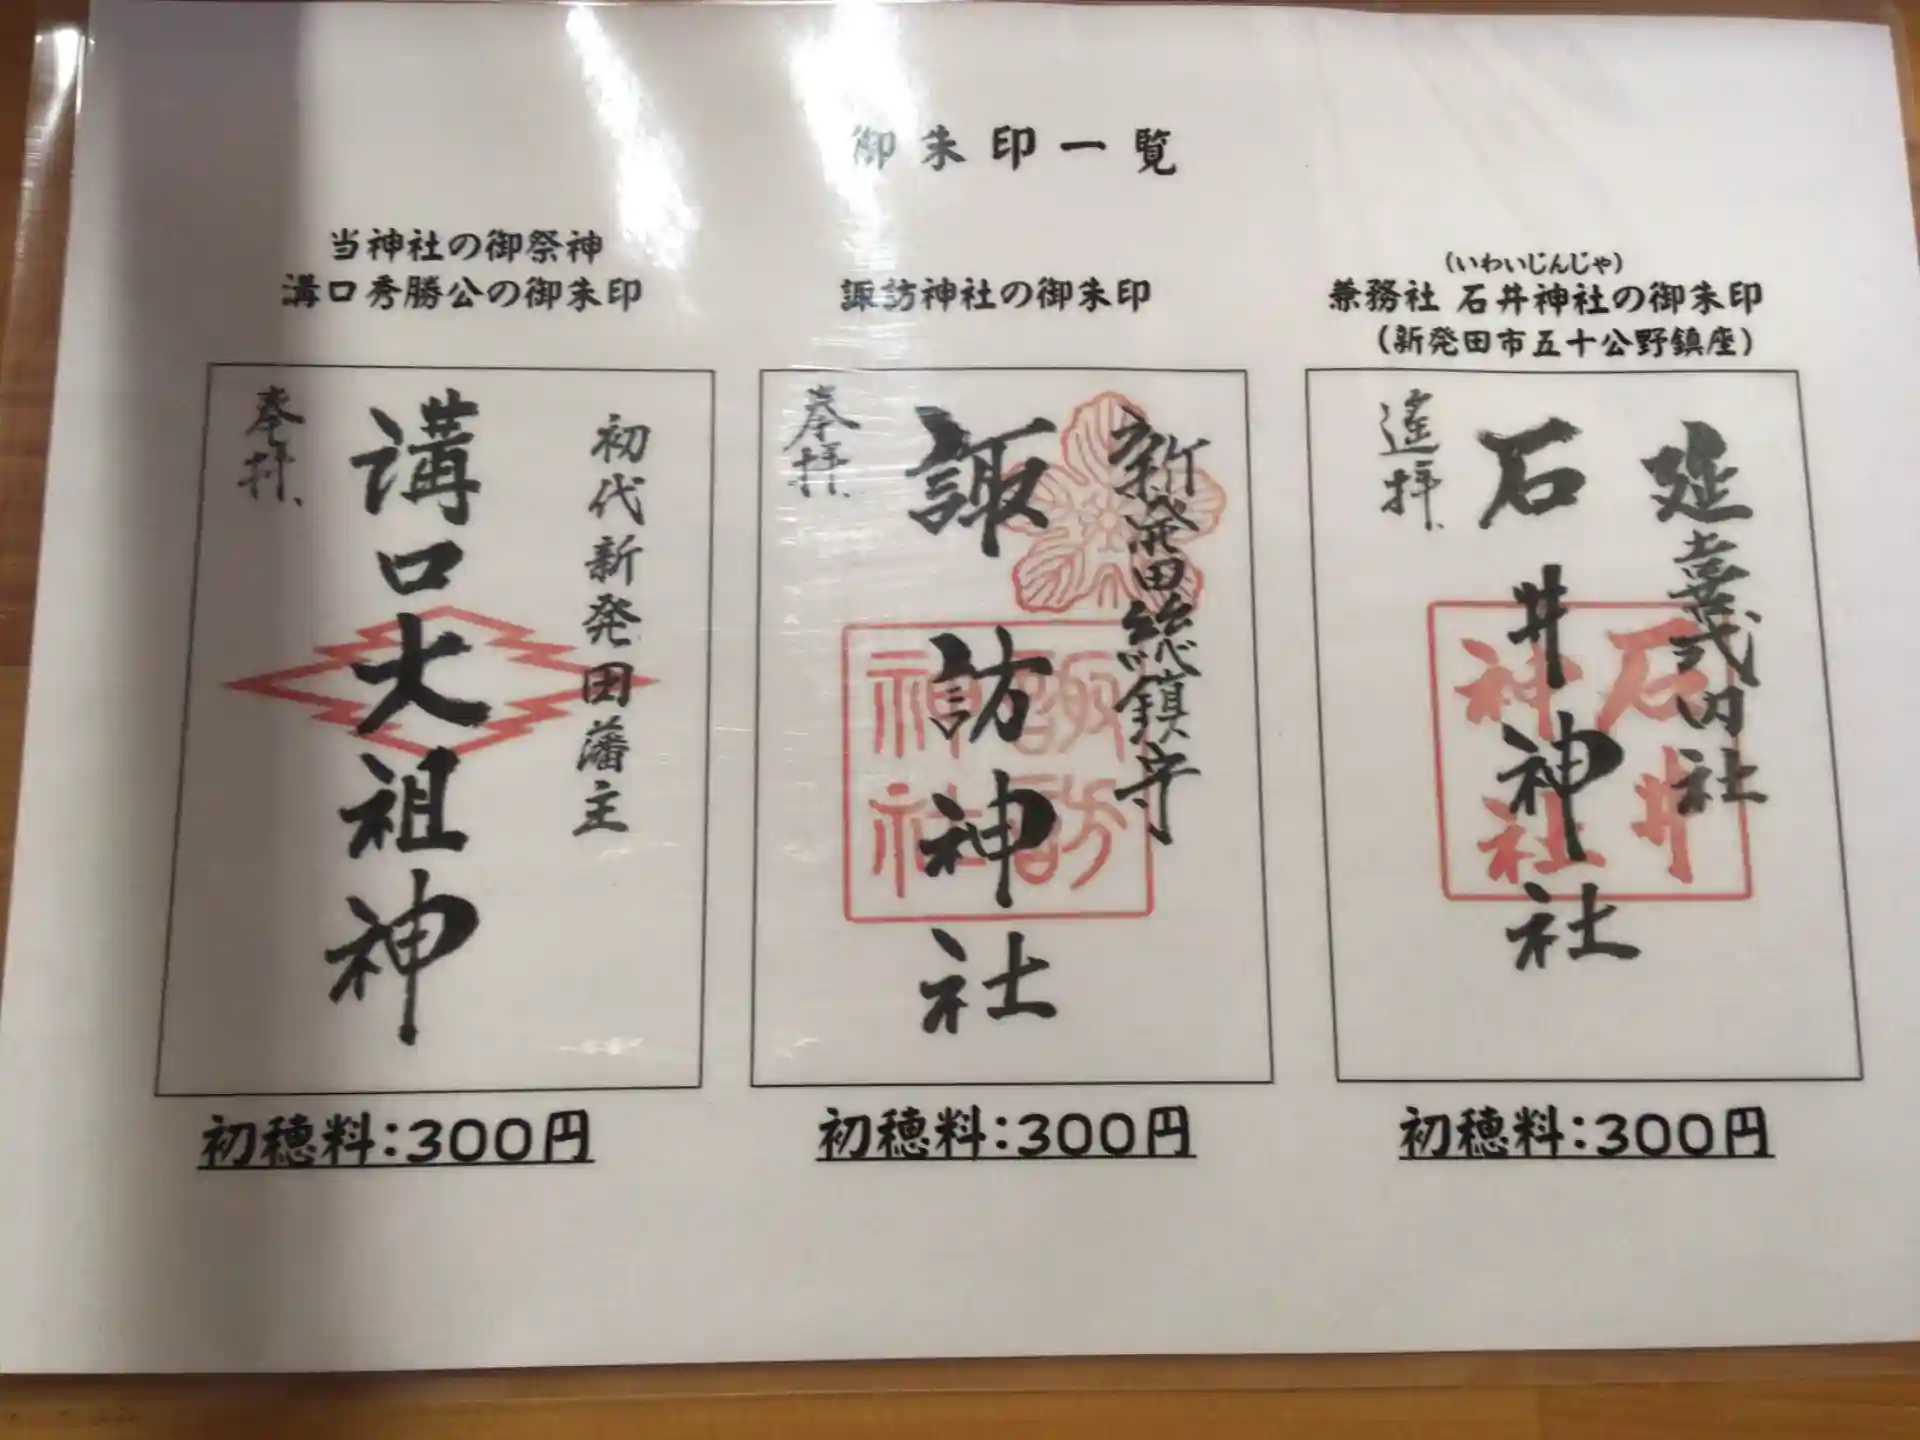 御朱印一覧
当神社の御祭神
溝口秀勝公の御朱印
奉拝
溝口大祖神
初代新発田藩主
初穂料:300円
諏訪神社の御朱印
奉拝
諏訪神社
新発田総鎮守
諏訪
神社
初穂料:300円
(いわいじんじゃ)
兼務社 石井神社の御朱印
(新発田市五十公野鎮座)
遙拝
石井神社
延喜式内社
石井
神社
初穂料:300円